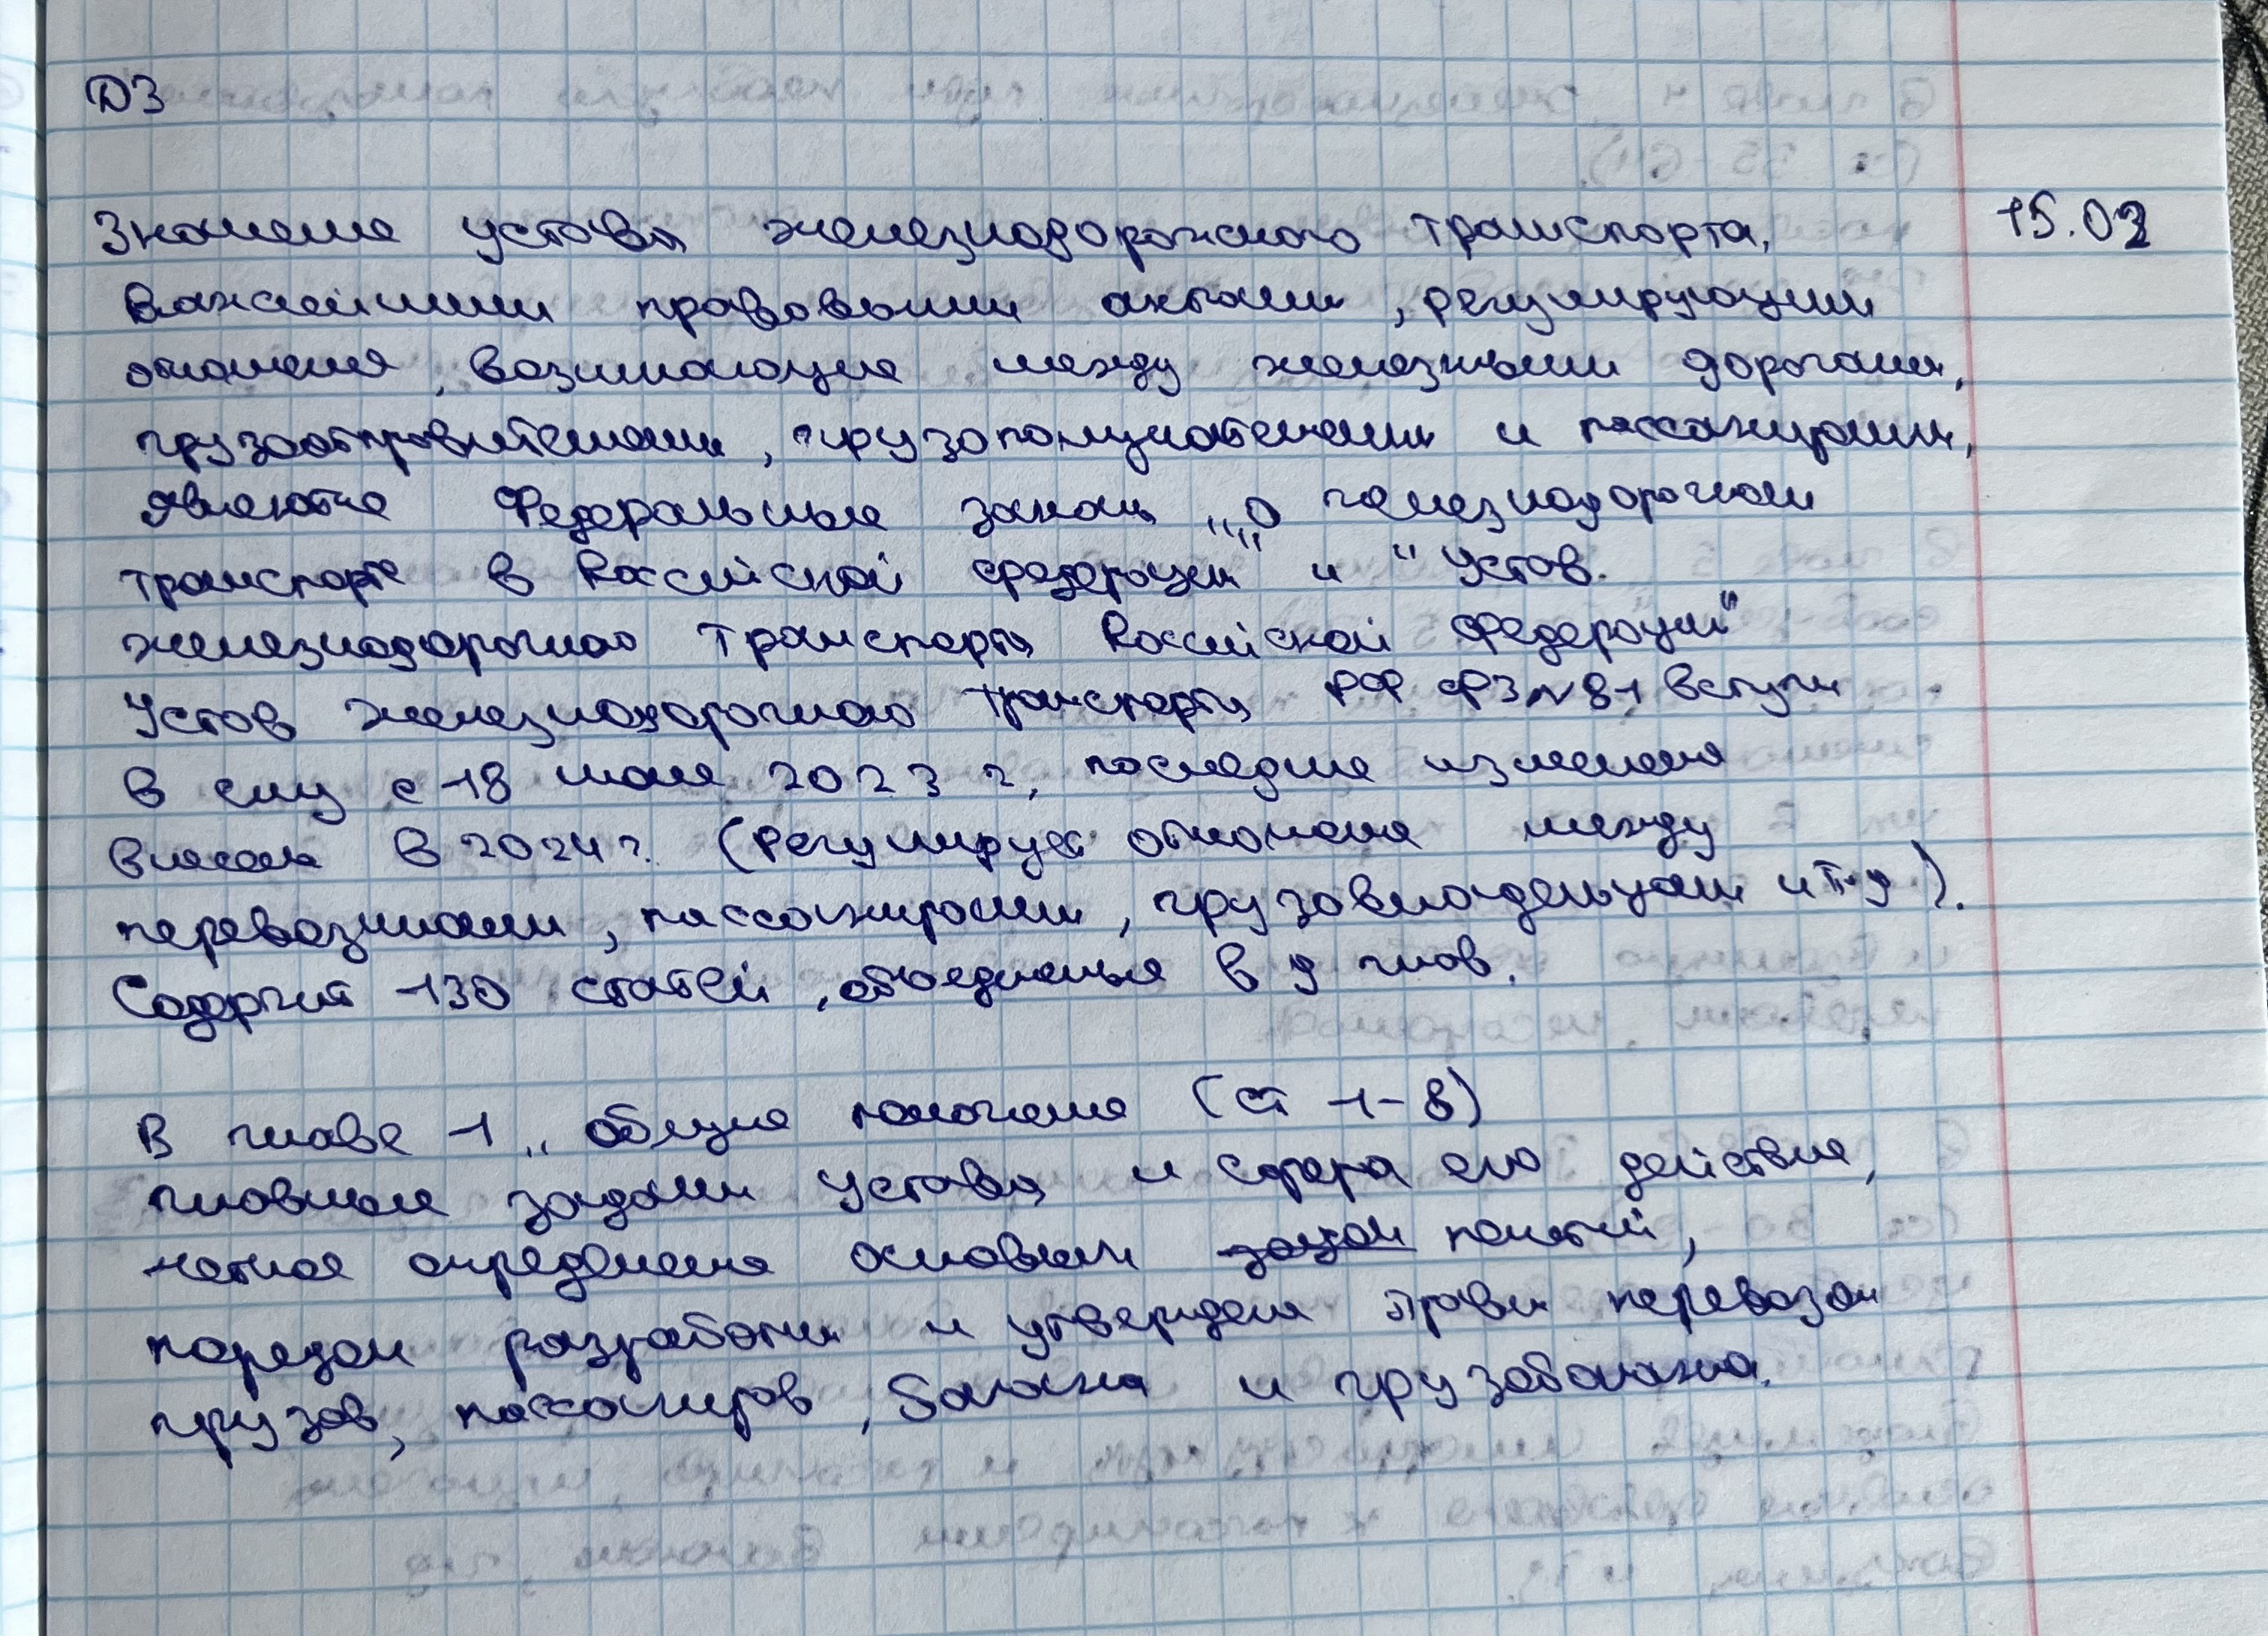 ДЗ
Значение устава железнодорожного транспорта. 15.02
Важнейшими правовыми актами, регулирующими
отношения, возникающие между железными дорогами,
грузоотправителями, грузополучателями и пассажирами,
являются Федеральные законы „О железнодорожном
транспорте в Российской федерации" и "Устав.
железнодорожного транспорта Российской Федерации"
Устав железнодорожного транспорта РФ ФЗ №81 вступил
в силу с 18 мая 2023 г, последние изменения
внесены в 2024 г. (регулирует отношения между
перевозчиками, пассажирами, грузовладельцами и т.д).
Содержит 130 статей, объединенных в 9 глав.
В главе 1 „ общие положения (ст 1-8)
главные задачи устава и сфера его действия,
четкое определения основных понятий,
порядок разработки и утверждения правил перевозок
грузов, пассажиров, багажа и грузобагажа.